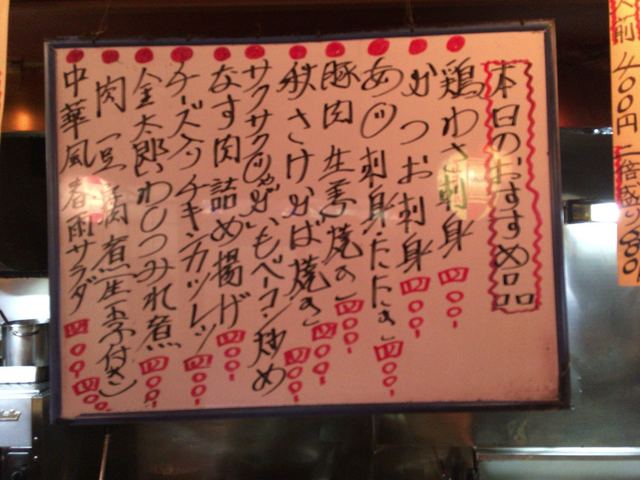 本日のおすすめ品
鶏わさ刺身 四〇〇-
かつお刺身 四〇〇-
あじ刺身・たたき 四〇〇-
豚肉生姜焼き 四〇〇-
秋さけかば焼き 四〇〇-
サクサクじゃがいもベーコン炒め 四〇〇-
なす肉詰め揚げ 四〇〇-
チーズ入りチキンカツレツ 四〇〇-
金太郎いわしつみれ煮 四〇〇-
肉豆腐煮(生玉子付き) 四〇〇-
中華風春雨サラダ 四〇〇-
人前 400円 二倍盛り 600